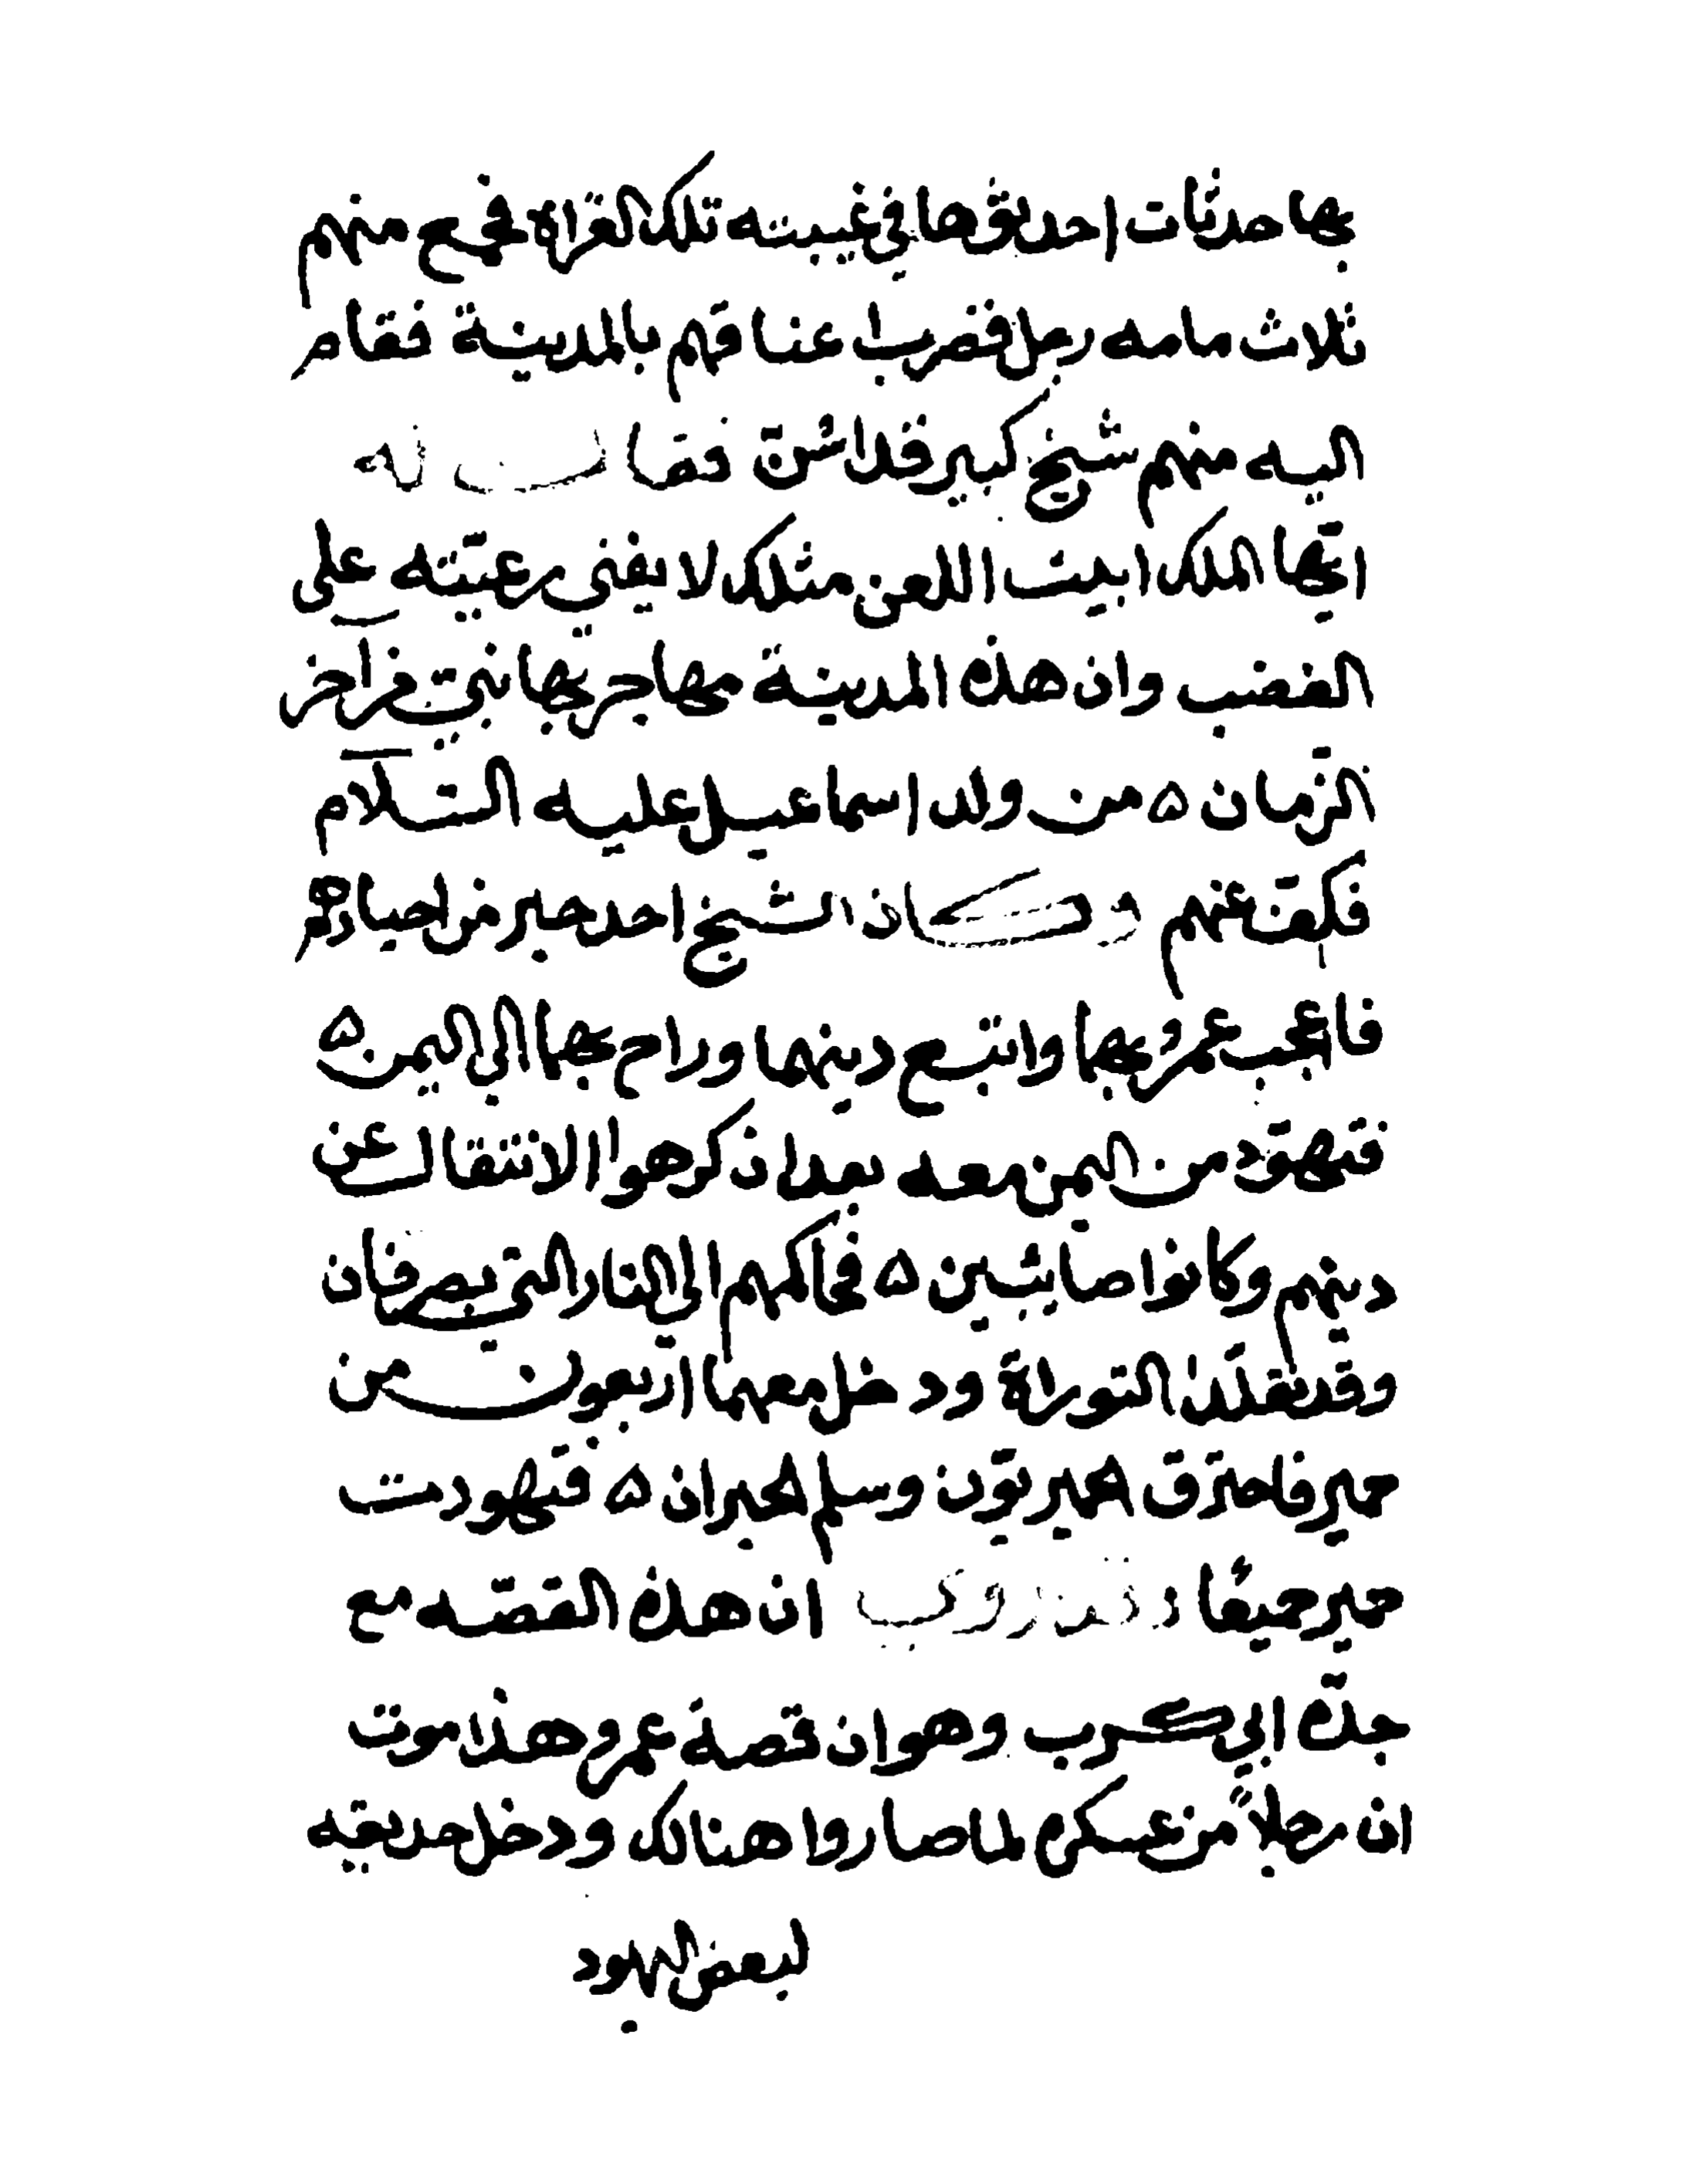 بها حدثات احدثوها في غيبته تلك الغزاة فجمع منهم
ثلاث مامه رجل فضرب اعناقهم بالمدينة فقام
اليه منهم شيخ كبير قد اسن فقال له
ايها الملك ابيت اللعن مثلك لا يفني رعيته على
الغضب وان هذه المدينة مهاجر بها نبي في آخر
الزمان ٥ من ولد اسماعيل عليه السلام
فكف عنهم وكان الشيخ احد حبر من احبارهم
فاعجب عمرو بهما واتبع دينهما وراح بهما الى اليمن ٥
فتهود من اليمن معه بعد اذ كرهوا الانتقال عن
دينهم وكانوا صابئين ٥ فحاكمهم الى النار التي يعرفان
وقد تقلدا التوراة ودخل معهما اربعون من
حمير فاحترق الحميريون وسلم الحبران ٥ فتهودت
حمير جميعًا وقد روي ان هذه القصه مع
جده ابي كرب وهو ان قصة عمرو هذا موت
ان رجلاً من عسكره لما صاروا هنالك ودخل حديقه
لبعض اليهود